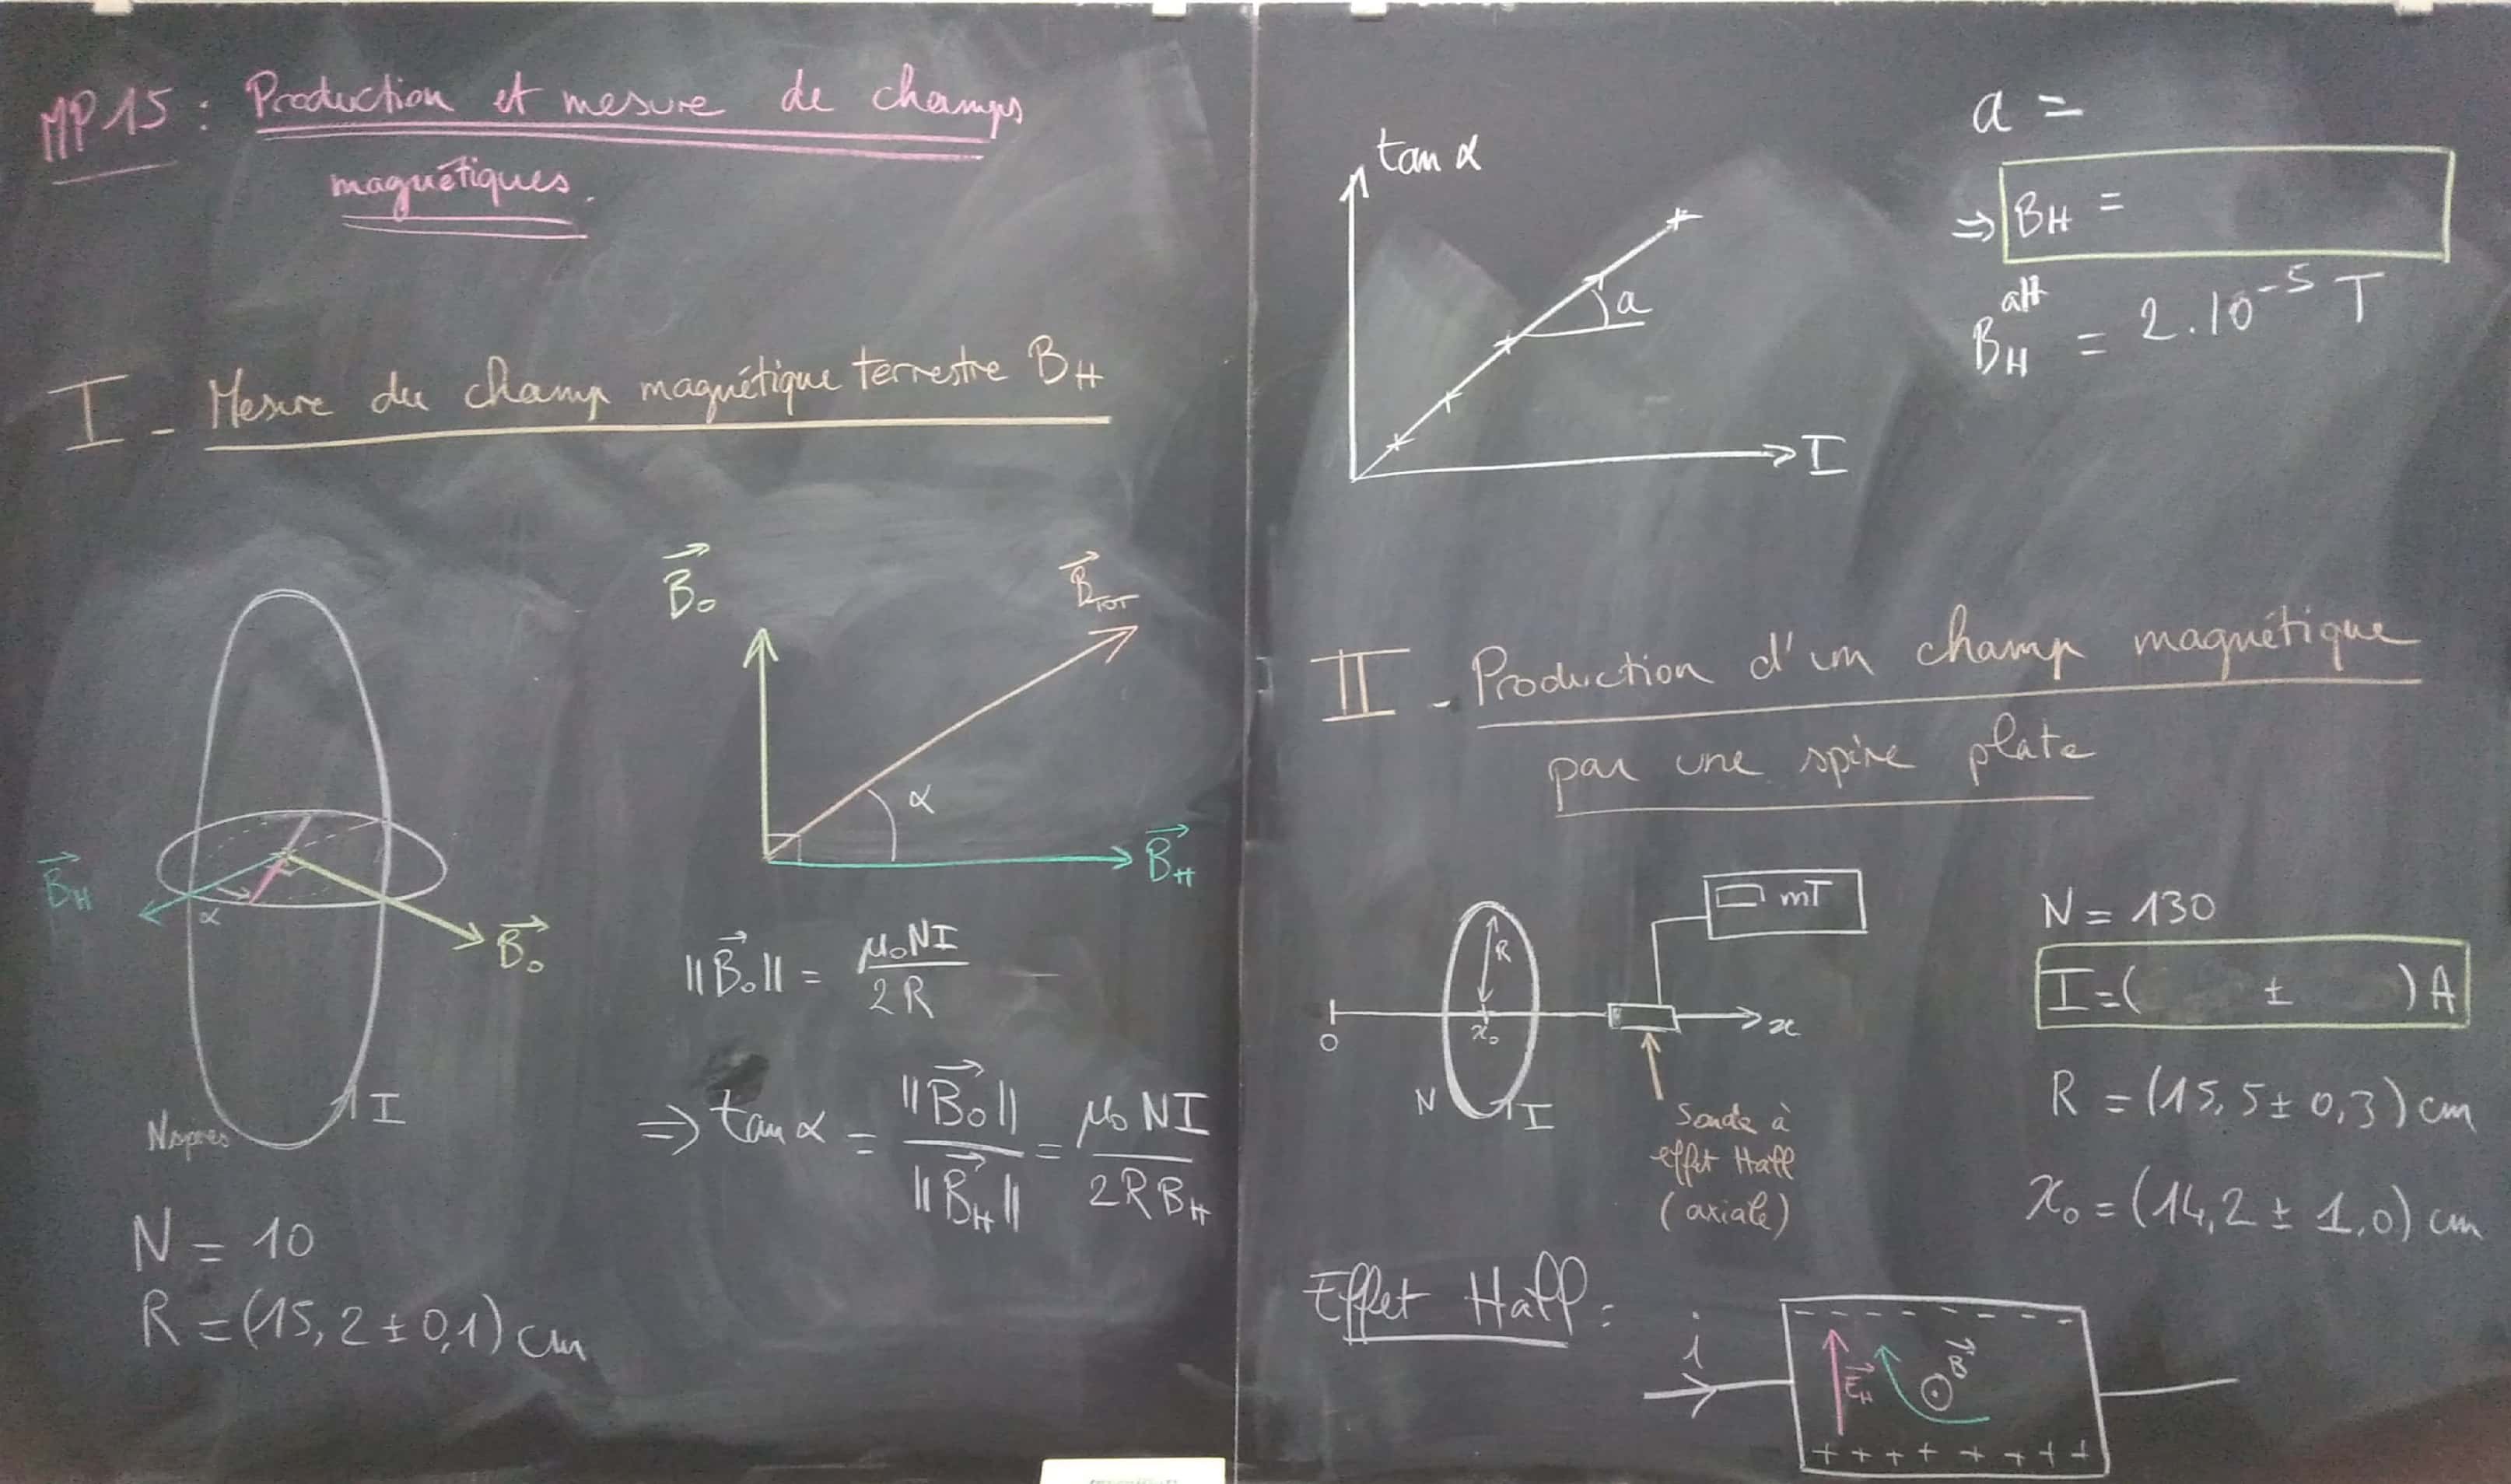 MP15 : Production et mesure de champs
magnétiques.
I - Mesure du champ magnétique terrestre B_H
B₀⃗
B_TOT⃗
α
B_H⃗
B_H⃗
α
B₀⃗
I
N spires
N = 10
R = (15,2 ± 0,1) cm
||B₀⃗|| = μ₀NI / 2R
⇒ tan α = ||B₀⃗|| / ||B_H⃗|| = μ₀NI / 2RB_H
tan α
a
I
a =
⇒ B_H =
B_H^att = 2.10⁻⁵ T
II - Production d'un champ magnétique
par une spire plate
mT
R
O
x₀
x
N
I
Sonde à
effet Hall
(axiale)
N = 130
I = ( ± ) A
R = (15,5 ± 0,3) cm
x₀ = (14,2 ± 1,0) cm
Effet Hall :
i
- - - - - - - -
E_H⃗
B⃗
+ + + + + + + +